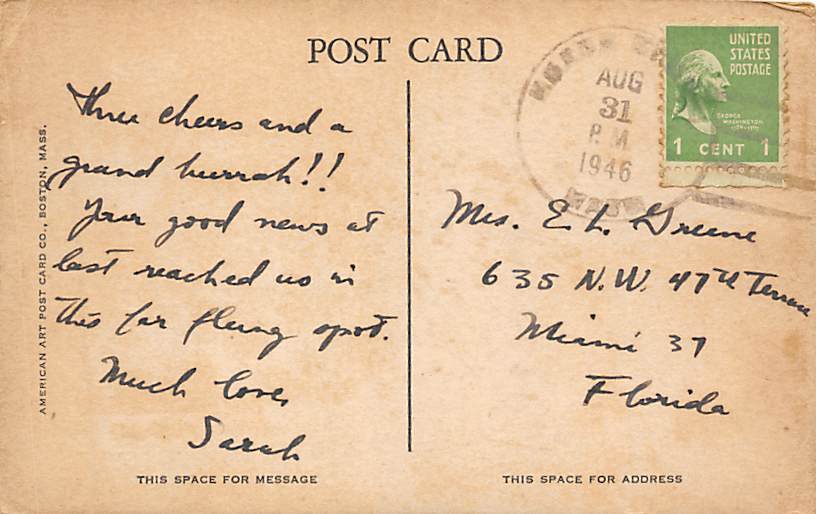 POST CARD
AMERICAN ART POST CARD CO., BOSTON, MASS.
Three cheers and a
grand hurrah!!
Your good news at
last reached us in
this far flung spot.
Much love,
Sarah
THIS SPACE FOR MESSAGE
AUG
31
P.M.
1946
UNITED
STATES
POSTAGE
GEORGE
WASHINGTON
1 CENT 1
Mrs. E. L. Greene
635 N.W. 47th Terrace
Miami 37
Florida
THIS SPACE FOR ADDRESS